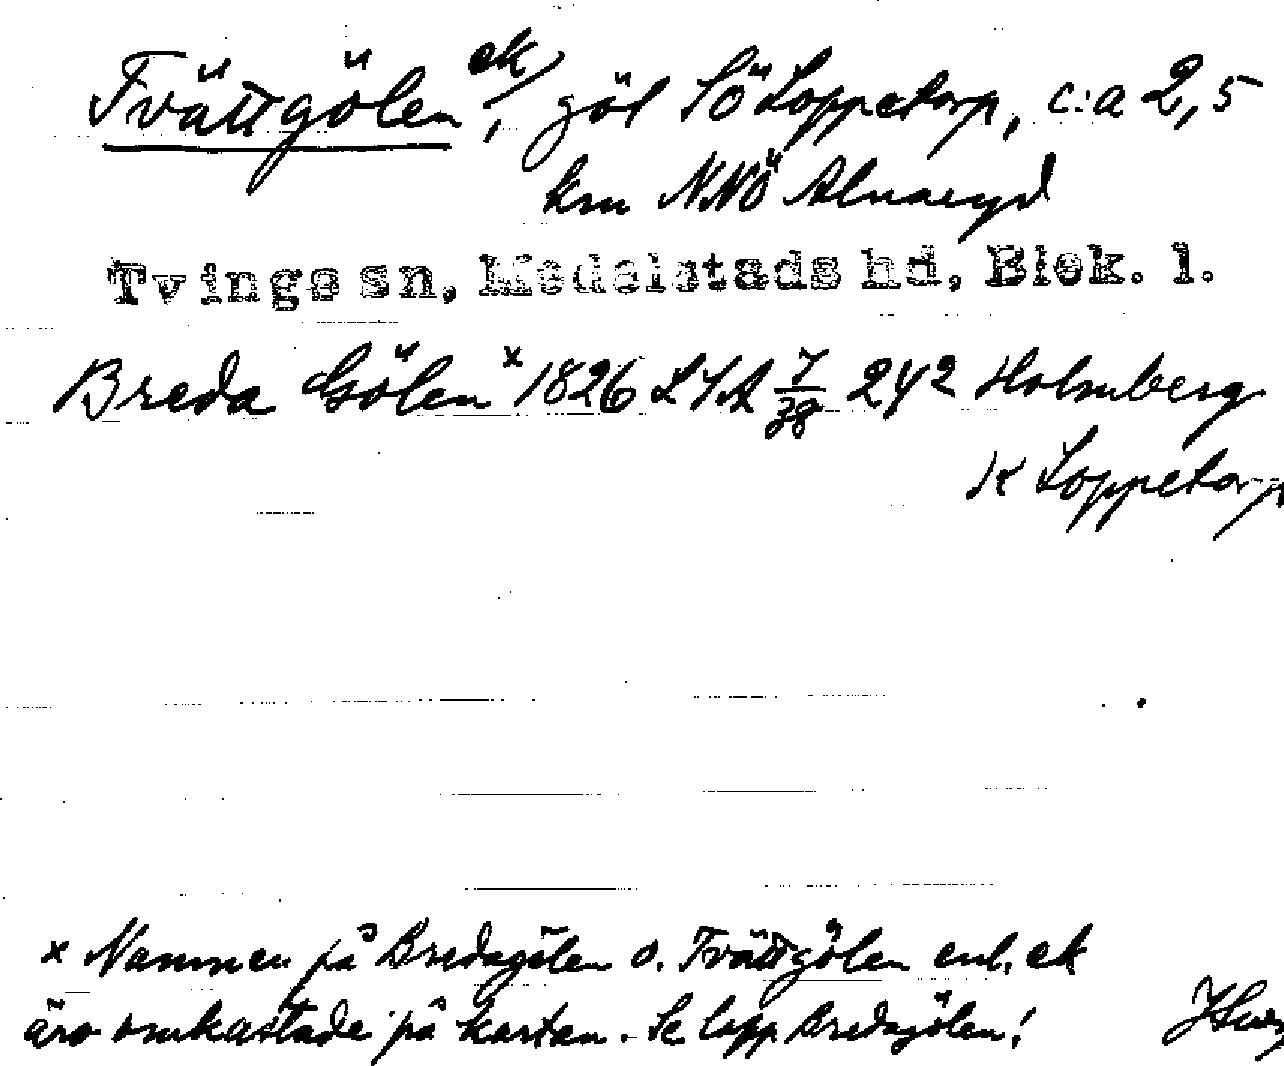 Tvättgölen ek, göl SÖ Loppetorp, c:a 2,5
km NNÖ Alnaryd
Tvings sn, Medelstads hd, Blek. l.
Breda Gölen x 1826 LSA 7/38 242 Holmberg
K Loppetorp
x Namnen på Bredagölen o. Tvättgölen enl. ek
äro omkastade på kartan. Se lapp Bredagölen!